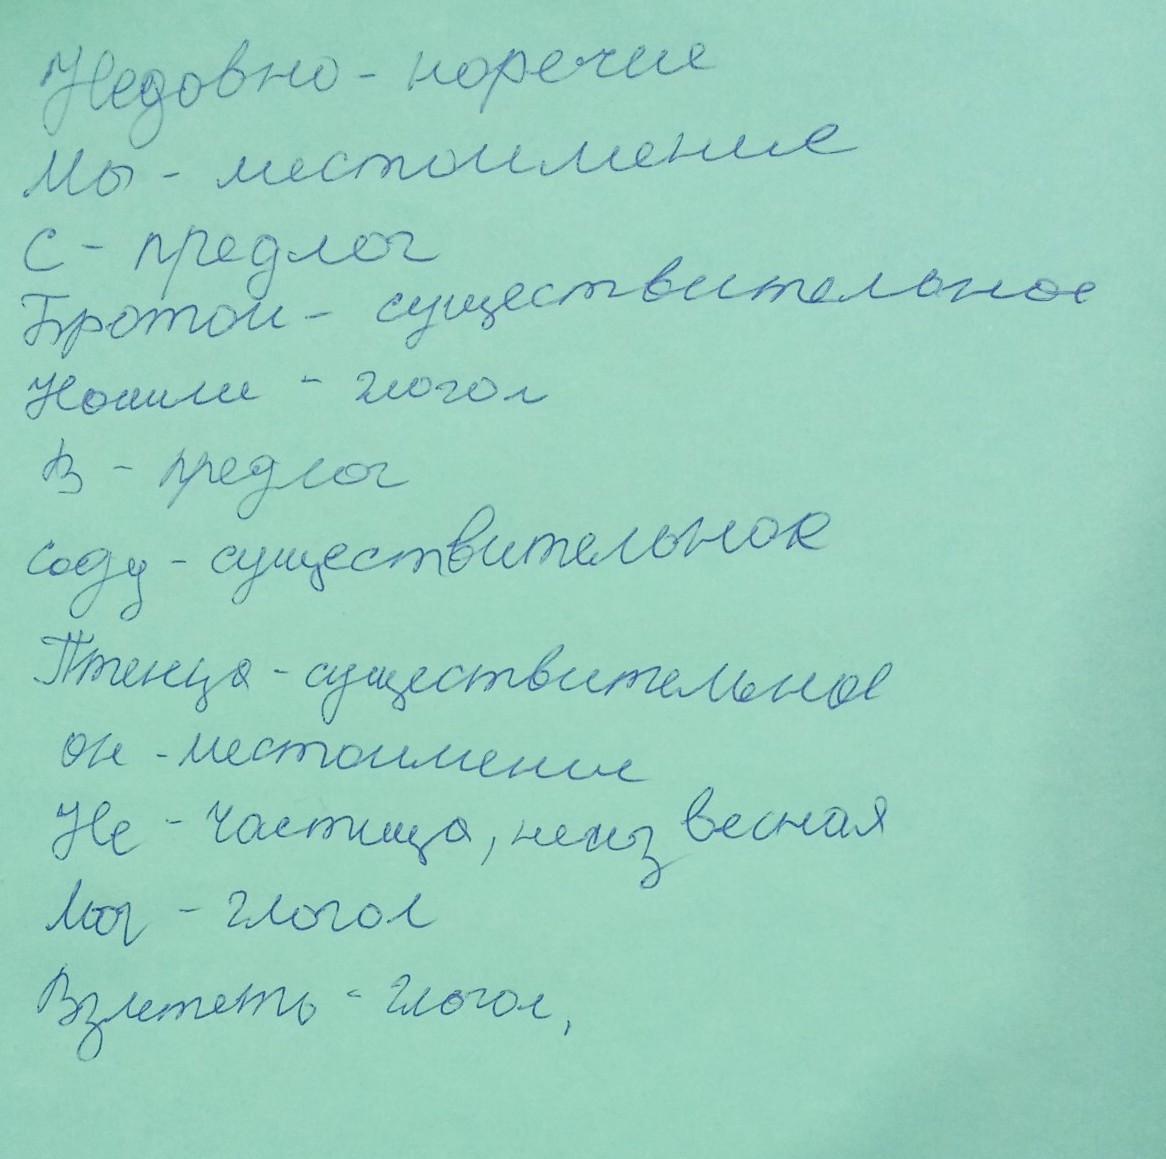 Недовно - норечие
Мы - местоимение
С - предлог
Бротом - существительное
Ношли - глогол
В - предлог
Соду - существительное
Птенца - существительное
он - местоимение
Не - частица, неизвесная
Мог - глогол
Взлететь - глогол,